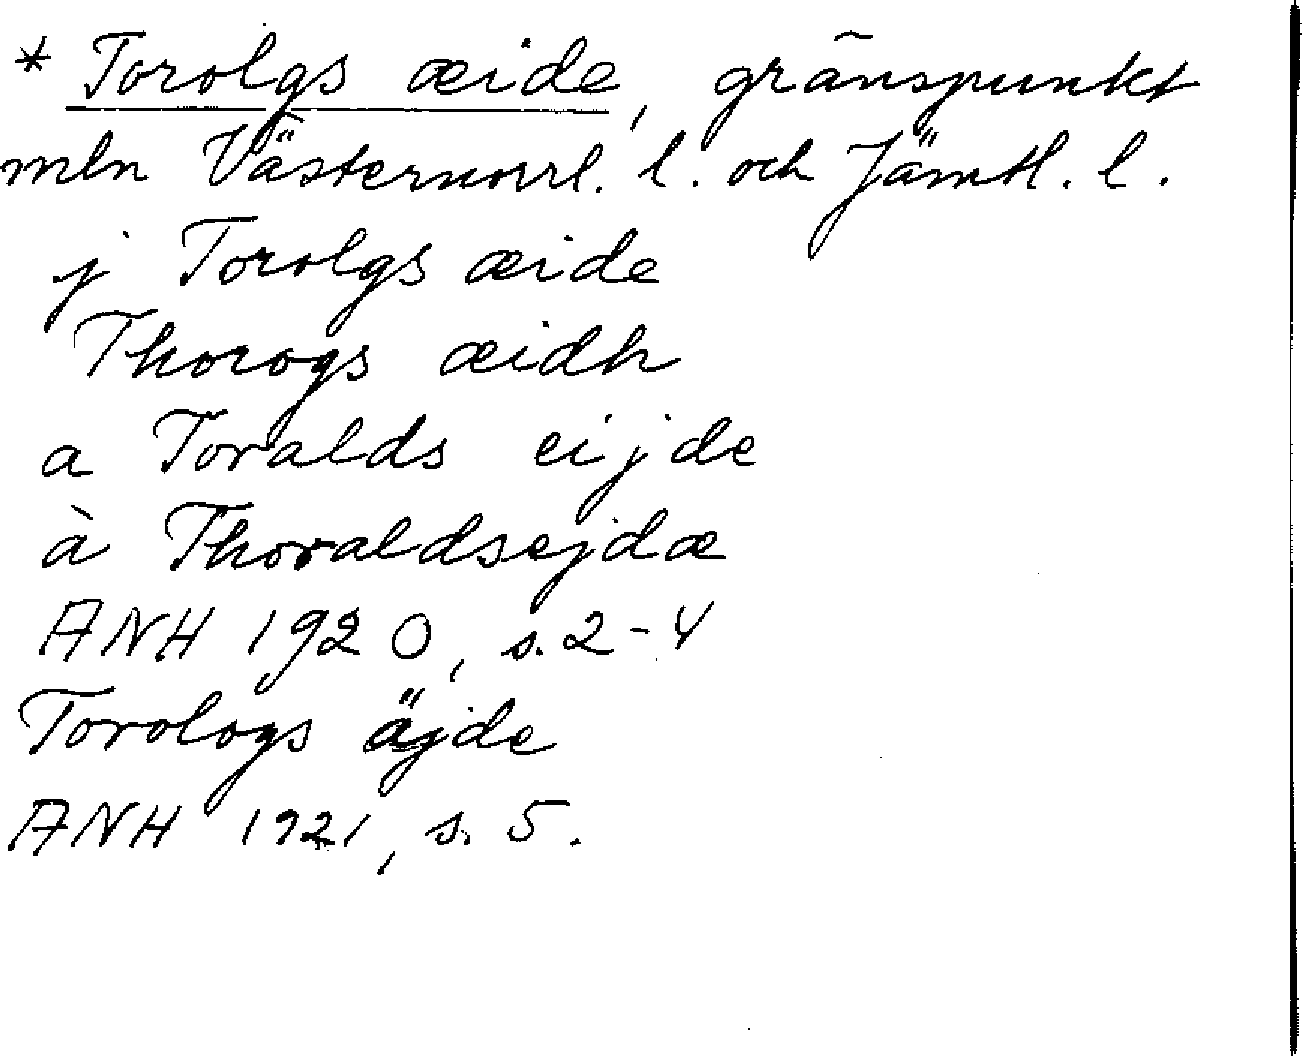 * Torolgs æide, gränspunkt
mln Västernorrl. l. och Jämtl. l.
j Torolgs æide
Thorogs æidh
a Toralds eijde
à Thoraldsejdæ
ANH 1920, s. 2-4
Torologs äjde
ANH 1921, s. 5.